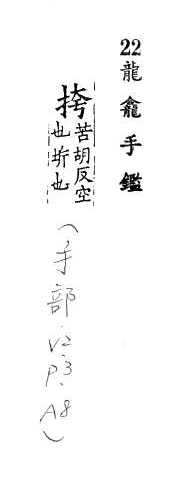 22龍龕手鑑
挎苦胡反空
也 也
(手部.V2.P.3.A8)